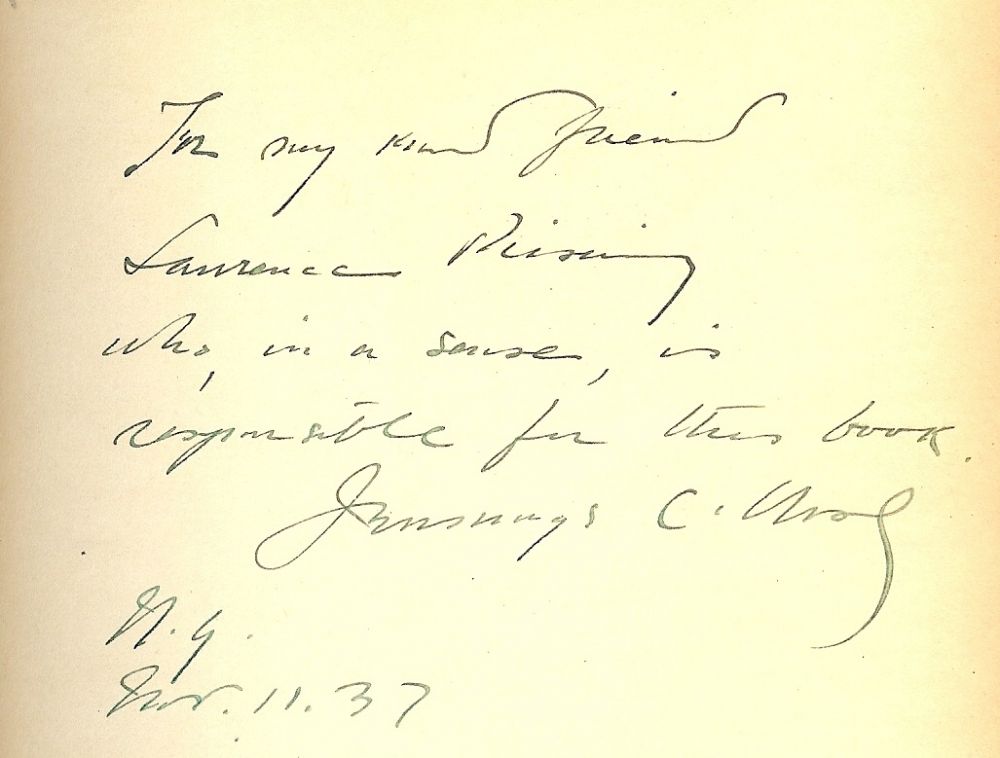 For my kind friend
Lawrence Rising
who, in a sense, is
responsible for this book.
Jennings C. Wise
N.Y.
Nov. 11. 37